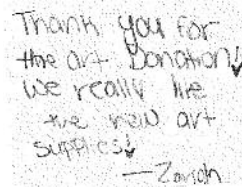 Thank you for
the art Donation!
we really like
the new art
supplies!
—Zariah